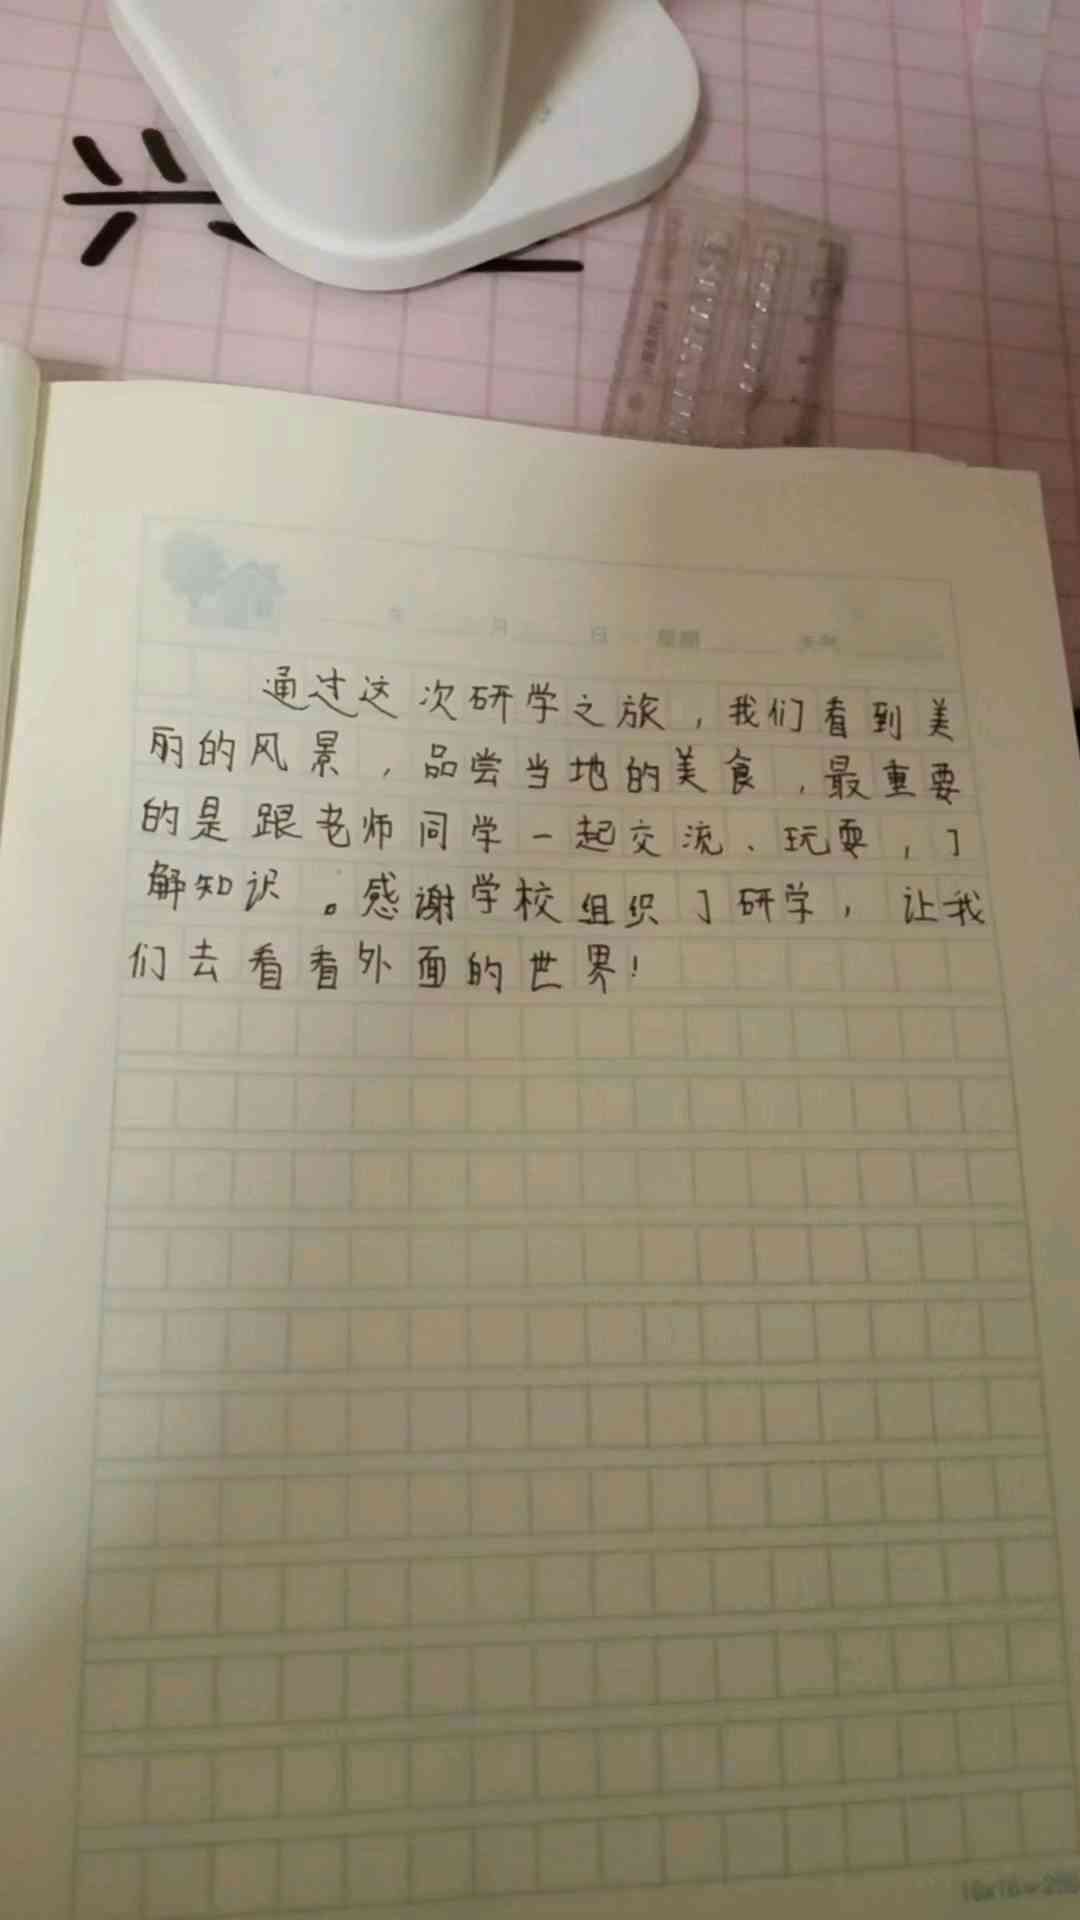 年 月 日 星期 天气
通过这次研学之旅，我们看到美
丽的风景，品尝当地的美食，最重要
的是跟老师同学一起交流、玩耍，了
解知识。感谢学校组织了研学，让我
们去看看外面的世界！